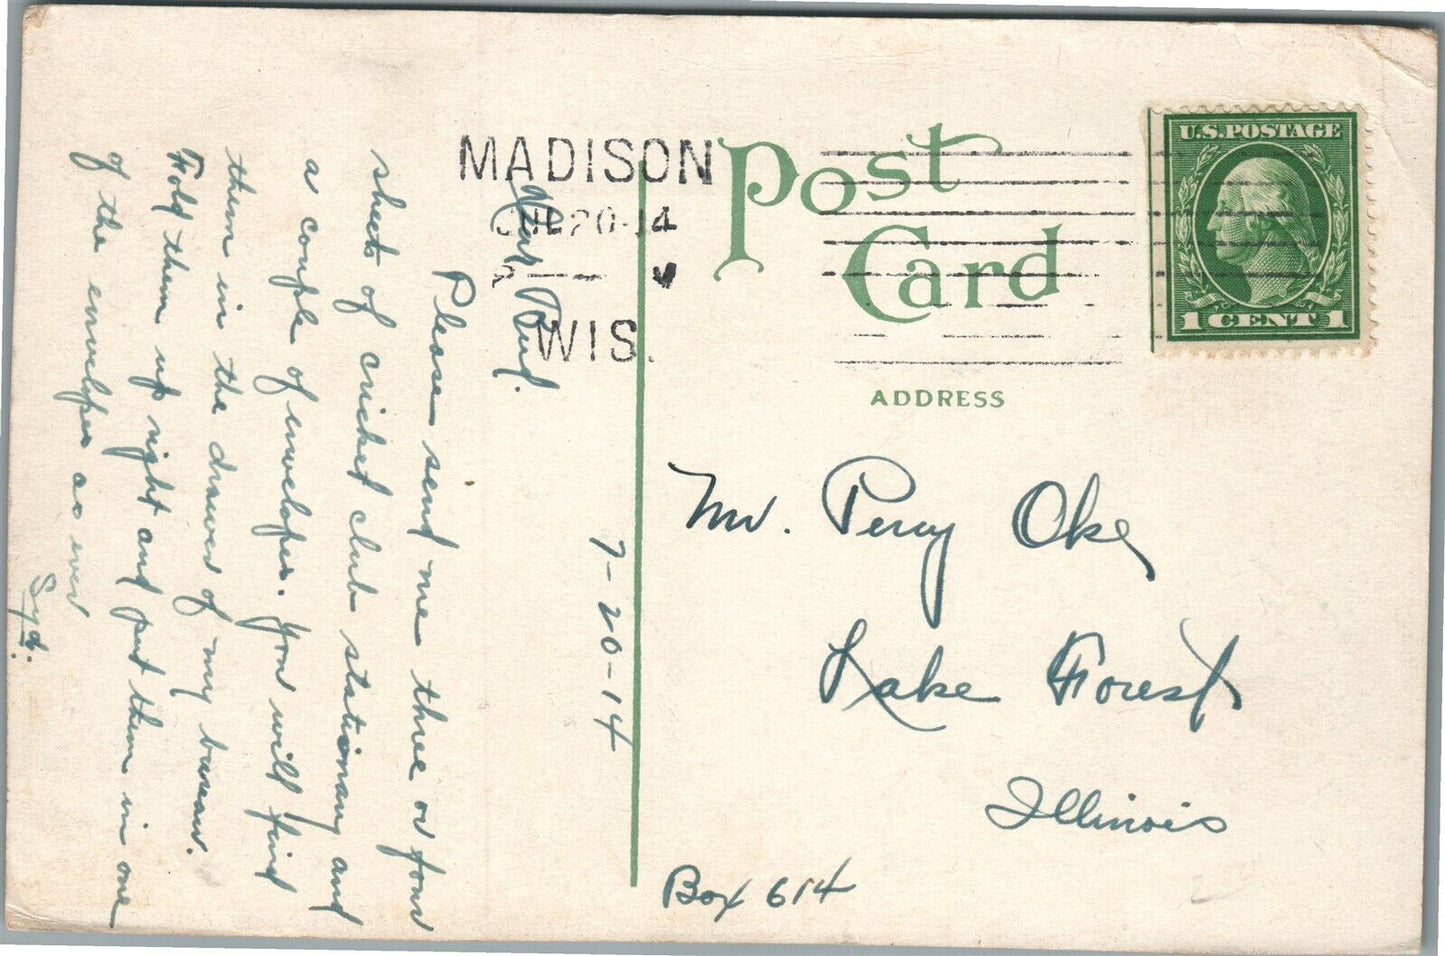 MADISON
JUL 20 14
P
WIS.
Post
Card
U.S. POSTAGE
1 CENT 1
ADDRESS
7-20-14
Dear Bud.
Please send me three or four
sheets of cricket club stationary and
a couple of envelopes. You will find
them in the drawer of my bureau.
Fold them up right and put them in one
of the envelopes as ever
Syd.
Mr. Percy Oke
Lake Forest
Illinois
Box 614